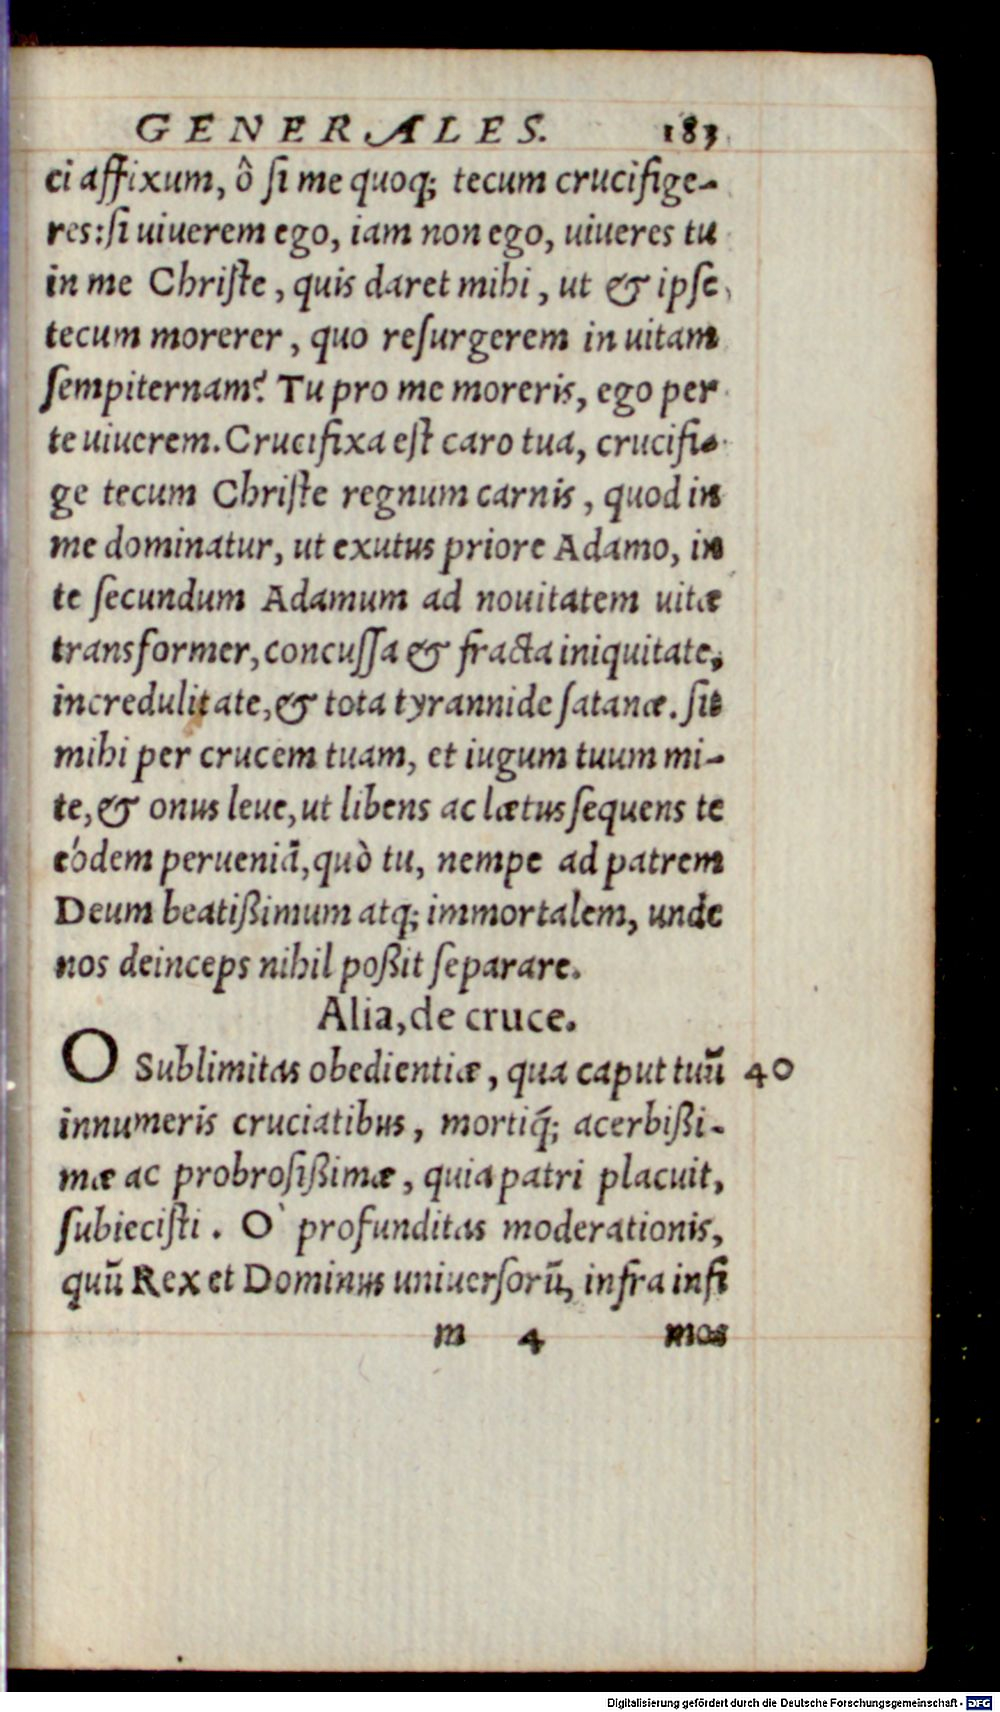 GENERALES. 183
ci affixum, ô ſi me quoq; tecum crucifige-
res: ſi uiuerem ego, iam non ego, uiueres tu
in me Chriſte, quis daret mihi, ut & ipſe
tecum morerer, quo reſurgerem in uitam
ſempiternam? Tu pro me moreris, ego per
te uiuerem. Crucifixa eſt caro tua, crucifi-
ge tecum Chriſte regnum carnis, quod in
me dominatur, ut exutus priore Adamo, in
te ſecundum Adamum ad nouitatem uitæ
transformer, concuſſa & fracta iniquitate,
incredulitate, & tota tyrannide ſatanæ. ſit
mihi per crucem tuam, et iugum tuum mi-
te, & onus leue, ut libens ac lætus ſequens te
eódem perueniā, quò tu, nempe ad patrem
Deum beatißimum atq; immortalem, unde
nos deinceps nihil poßit ſeparare.
Alia, de cruce.
O Sublimitas obedientiæ, qua caput tuū 40
innumeris cruciatibus, mortiq́; acerbißi-
mæ ac probroſißimæ, quia patri placuit,
ſubieciſti. O` profunditas moderationis,
quū Rex et Dominus uniuerſorū, infra infi
m 4 mos
Digitalisierung gefördert durch die Deutsche Forschungsgemeinschaft - DFG